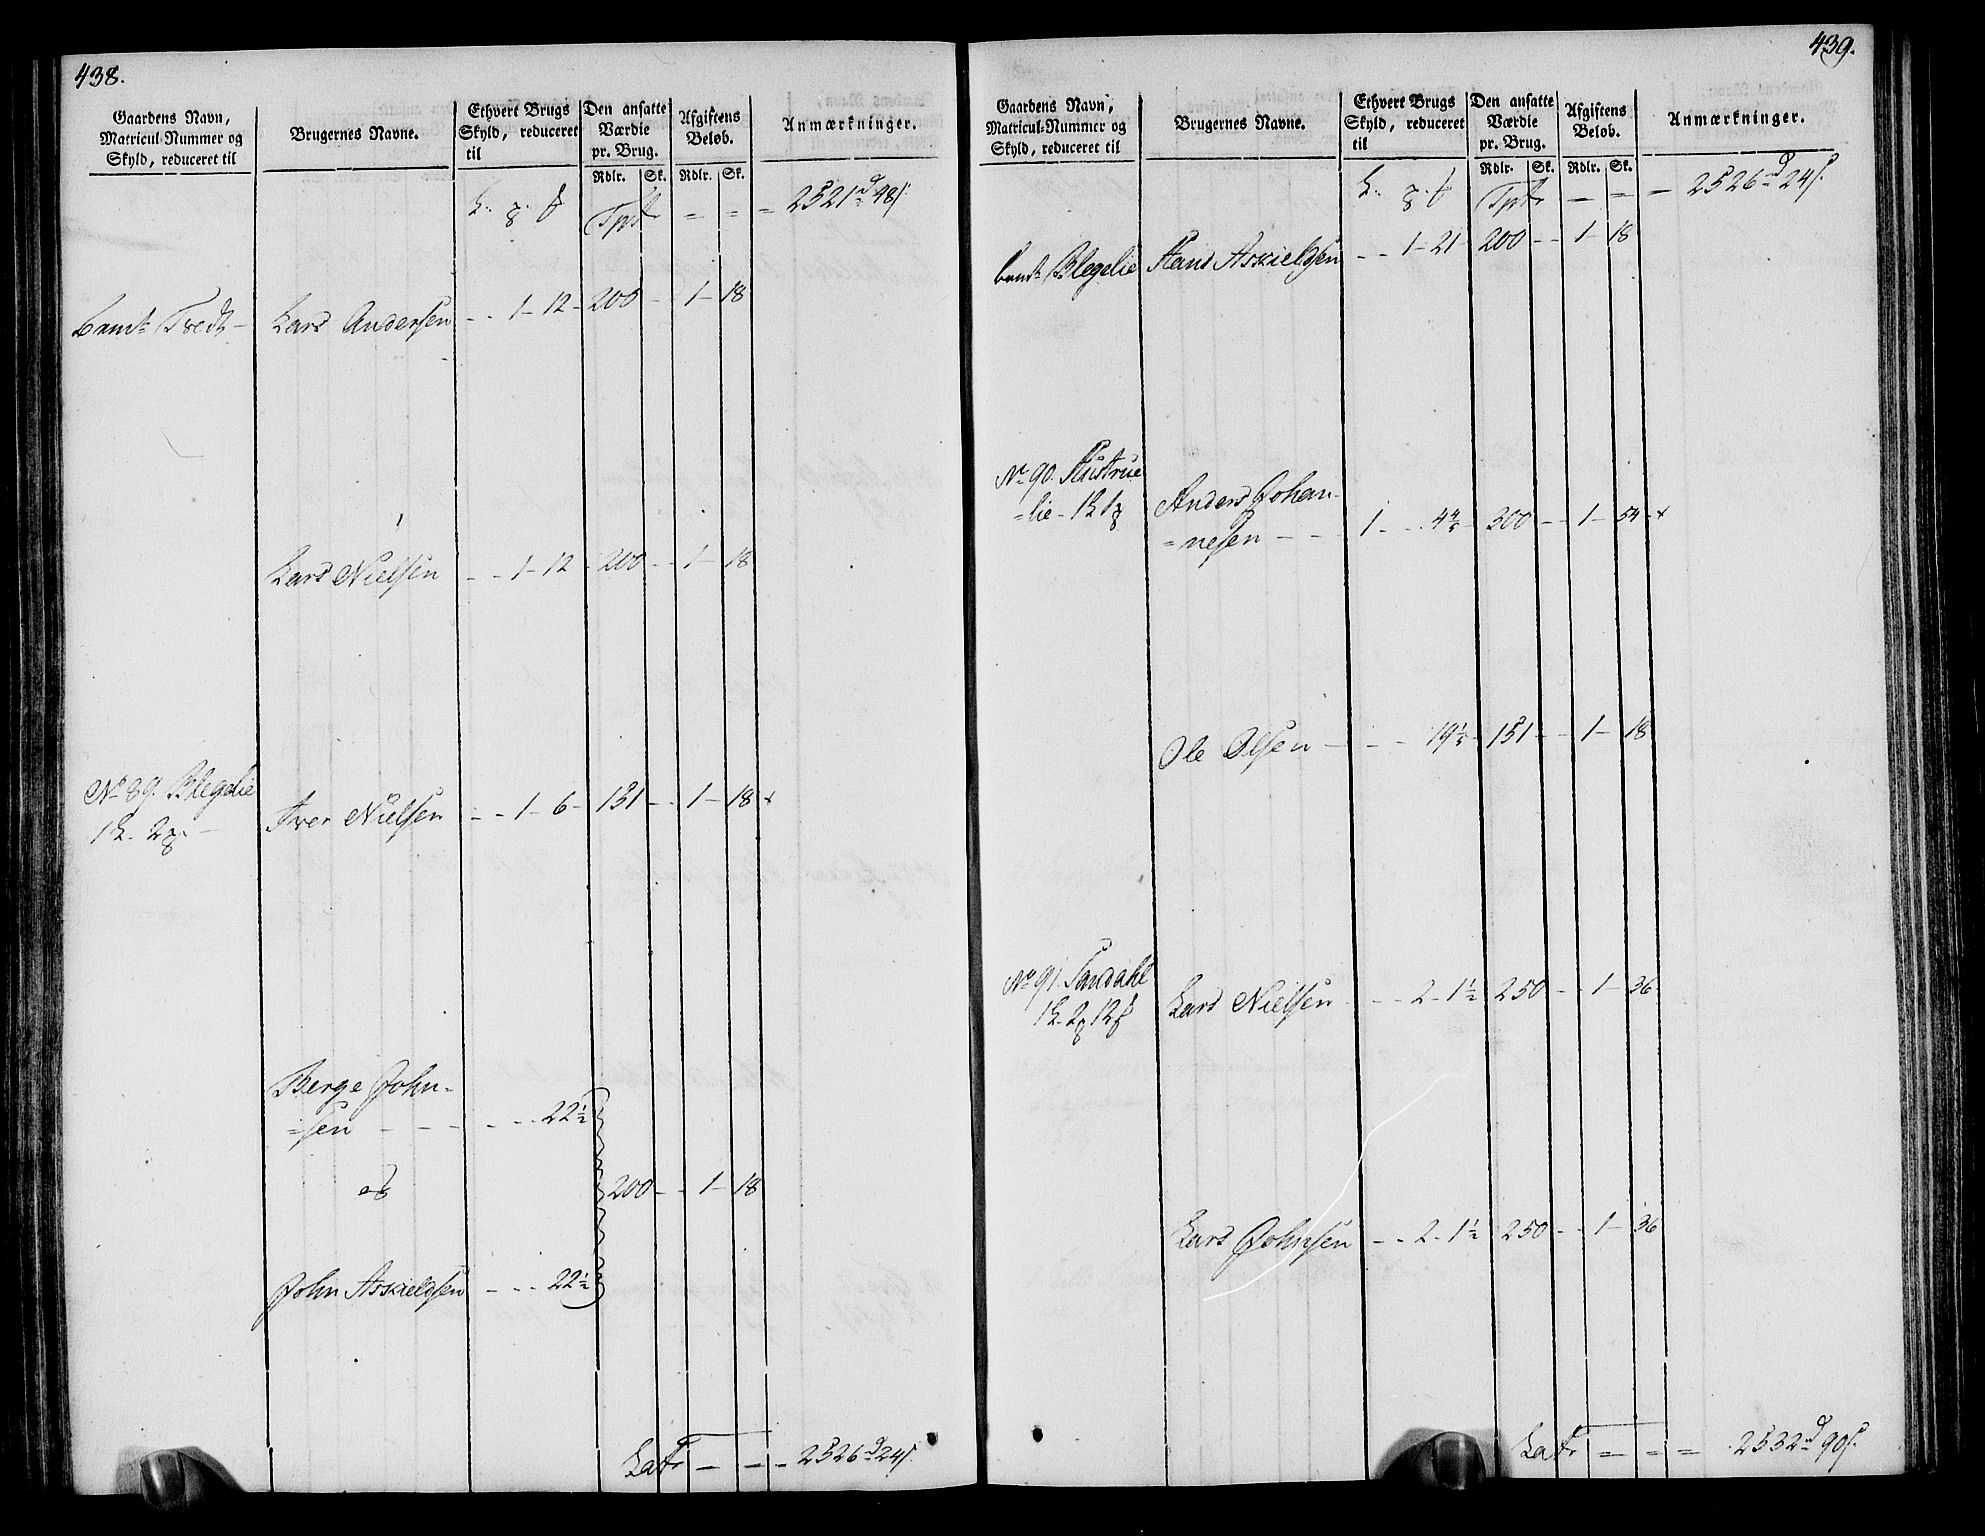 438.
Gaardens Navn,
Matricul-Nummer og
Skyld, reduceret til
Brugernes Navne.
Ethvert Brugs
Skyld, reduceret
til
Den ansatte
Værdie
pr. Brug.
Rdlr. Sk.
Afgiftens
Beløb.
Rdlr. Sk.
Anmærkninger.
Tpt = = = 2521 d 48 s.
Bemt Tvedt - Lars Andersen - - 1 - 12 - 200 - - 1 - 18
Lars Nielsen - - 1 - 12 - 200 - - 1 - 18
No 89. Blegelie Iver Nielsen - - 1 - 6 - 151 - - 1 - 18 x
Berge John-
=sen - - - - - - 22 1/2
og 200 - - 1 - 18
John Askieldsen - - - 22 1/2
Latr - - - 2526 d 24 s.
439.
Gaardens Navn,
Matricul-Nummer og
Skyld, reduceret til
Brugernes Navne.
Ethvert Brugs
Skyld, reduceret
til
Den ansatte
Værdie
pr. Brug.
Rdlr. Sk.
Afgiftens
Beløb.
Rdlr. Sk.
Anmærkninger.
Tpt - = - 2526 d 24 s.
Bemt Blegelie Hans Askieldsen - - 1 - 21 - 200 - - 1 - 18
No 90. Hustrue
=lie - Anders Johan-
=nesen - - - 1 - - 4 4/5 - 300 - - 1 - 54 - x
Ole Olsen - - - 19 1/5 - 151 - - 1 - 18
No 91. Sandahl Lars Nielsen - - - 2 - 1 1/2 250 - - 1 - 36
Lars Johnsen - - 2 - 1 1/2 250 - - 1 - 36
Latr = = = 2532 d 90 s.